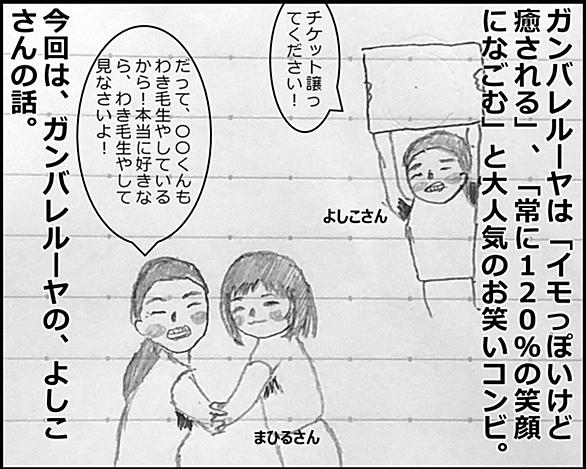 ガンバレルーヤは「イモっぽいけど
癒される」、「常に120%の笑顔
になごむ」と大人気のお笑いコンビ。
チケット譲っ
てください!
よしこさん
だって、〇〇くんも
わき毛生やしている
から!本当に好きな
ら、わき毛生やして
見なさいよ!
まひるさん
今回は、ガンバレルーヤの、よしこ
さんの話。